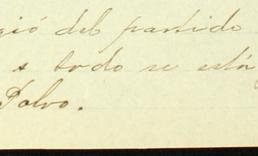 gió del partido
s todo se está
Polvo.